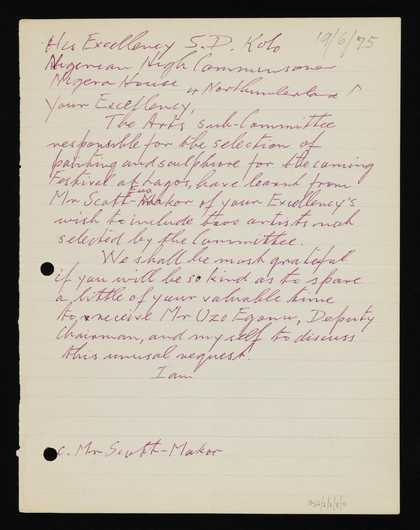 His Excellency S. D. Kolo 19/6/75
Nigerian High Commissioner
Nigera House 9 Northumberland
Your Excellency,
The Arts sub-Committee
responsible for the selection of
painting and sculpture for the coming
Festival at Lagos, have learnt from
Mr Scott-Emuakpor of your Excellency's
wish to include two artists not
selected by the Committee.
We shall be most grateful
if you will be so kind as to spare
a little of your valuable time
to receive Mr Uzo Egonu, Deputy
Chairman, and myself to discuss
this unusual request.
I am
c. Mr Scott-Makor